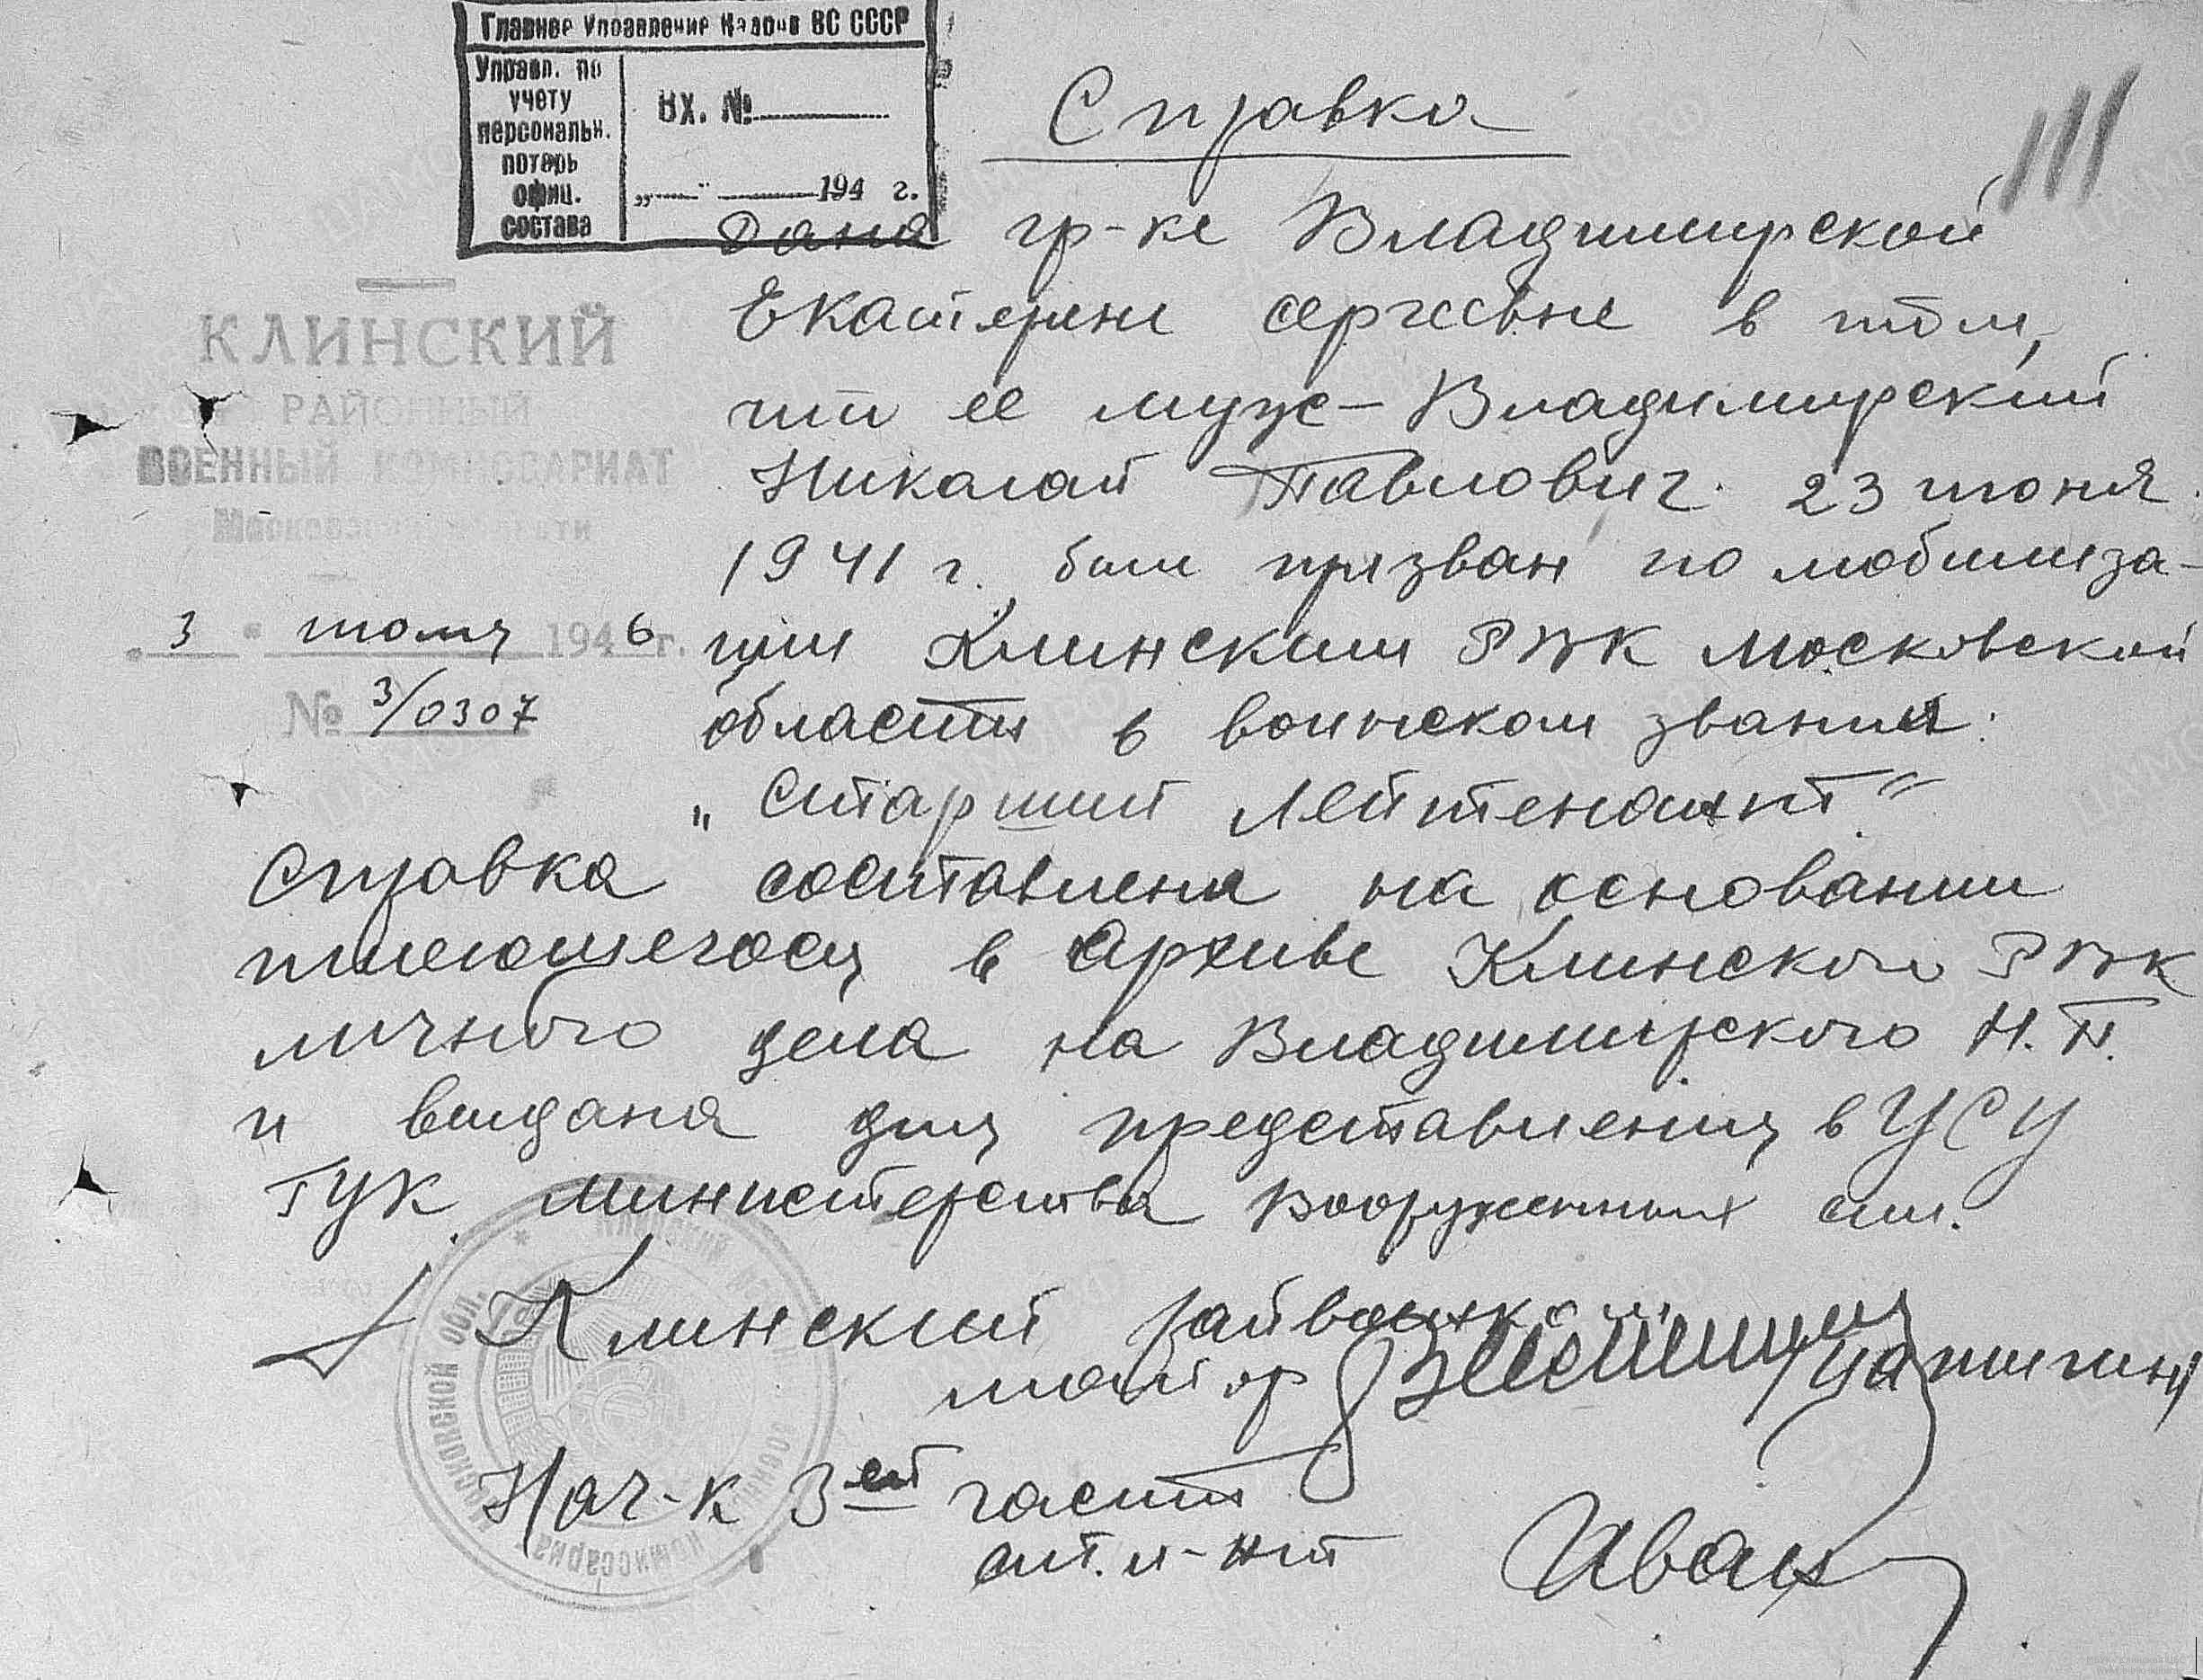 Главное Управление Кадров ВС СССР
Управл. по
учету
персональн.
потерь
офиц.
состава
Вх. №
„ “ 194 г.
111
Справка
Дана гр-ке Владимирской
Екатерине сергеевне в том,
что ее муж – Владимирский
Николай Павлович 23 июня
1941 г. был призван по мобилиза-
ции Клинским РВК Московской
области в воинском звании:
„Старший лейтенант“
КЛИНСКИЙ
РАЙОННЫЙ
ВОЕННЫЙ КОМИССАРИАТ
Московской области
3 июля 1946 г.
№ 3/0307
Справка составлена на основании
имеющегося в Архиве Клинского РВК
личного дела на Владимирского Н.П.
и выдана для представления в УСУ
ГУК министерства Вооруженных сил.
Клинский райвоенком
майор
Нач-к 3ей части
ст. л-нт
Московской обл. * Клинский
комиссариат